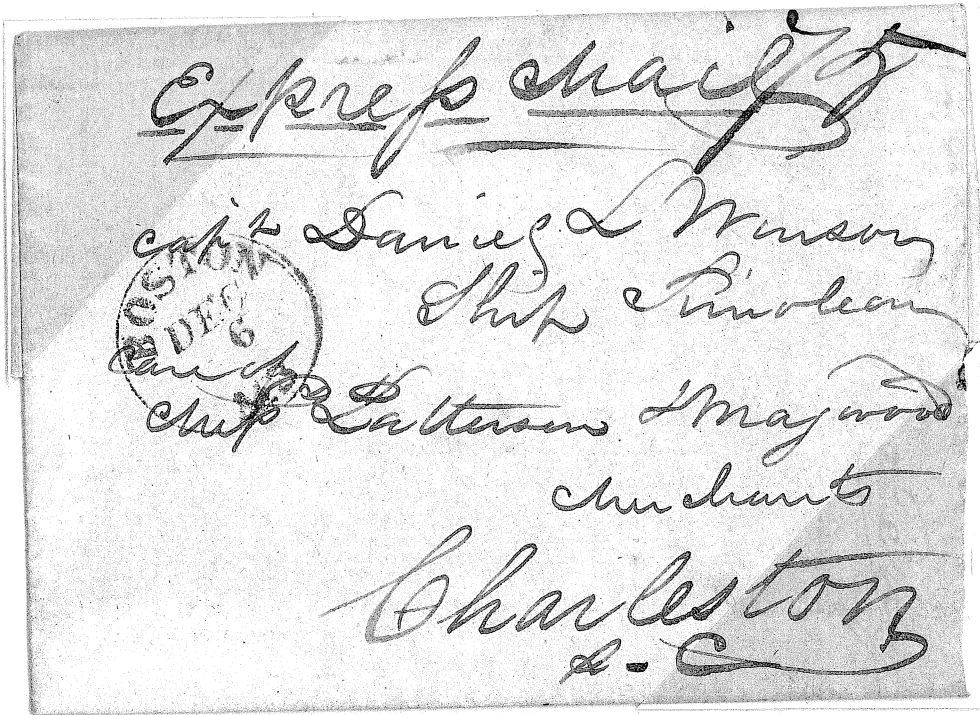 Express Mail 75
Capt Daniel L Winsor
Ship
BOSTON
DEC
6
Care of
Mess Patterson & Magwood
Merchants
Charleston
S. C